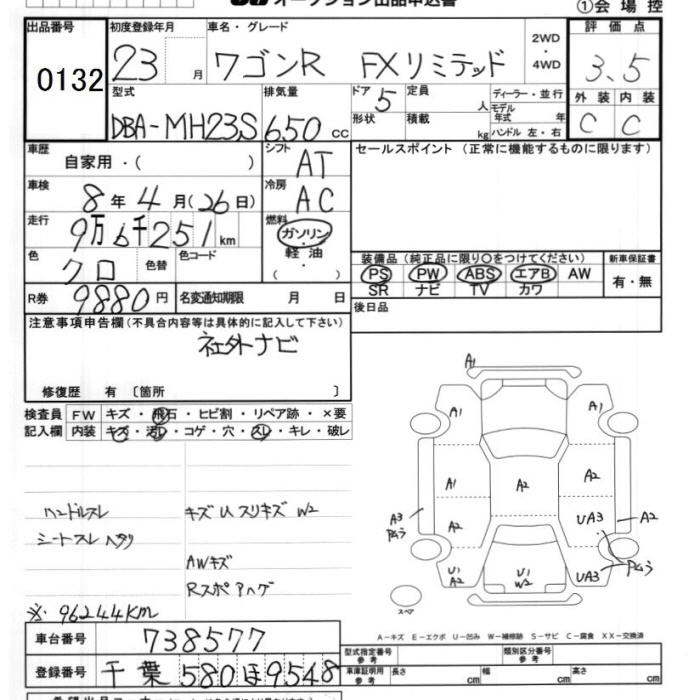 オークション出品申込書
①会場控
出品番号 0132
初度登録年月 23 月
車名・グレード ワゴンR FXリミテッド
2WD・4WD
評価点 3.5
外装 C 内装 C
型式 DBA-MH23S
排気量 650 cc
ドア 5
形状
定員 人
積載 kg
ディーラー・並行
モデル年式 年
ハンドル 左・右
車歴 自家用・( )
シフト AT
セールスポイント (正常に機能するものに限ります)
車検 8年4月(26日)
冷房 AC
走行 9万6千251km
燃料 ガソリン・軽油・( )
色 クロ 色替 色コード
装備品 (純正品に限り○をつけてください)
PS PW ABS エアB AW
SR ナビ TV カワ
新車保証書 有・無
R券 9880円
名変通知期限 月 日
後日品
注意事項申告欄 (不具合内容等は具体的に記入して下さい)
社外ナビ
修復歴 有 〔箇所 〕
検査員記入欄
FW キズ・飛石・ヒビ割・リペア跡・×要
内装 キズ・汚レ・コゲ・穴・スレ・キレ・破レ
ハンドルスレ
シートスレ ヘタリ
キズ U スリキズ W2
AWキズ
Rスポ Aハゲ
※ 96244KM
A1
A1 A1
A1 A2 A2
A3 A2 UA3 A2
U1 A2 U1 W2 UA3
スペア
A-キズ E-エクボ U-凹み W-補修跡 S-サビ C-腐食 XX-交換済
車台番号 738577
登録番号 千葉 580 ほ 9548
型式指定番号 参考
類別区分番号 参考
車庫証明用 参考 長さ cm 幅 cm 高さ cm